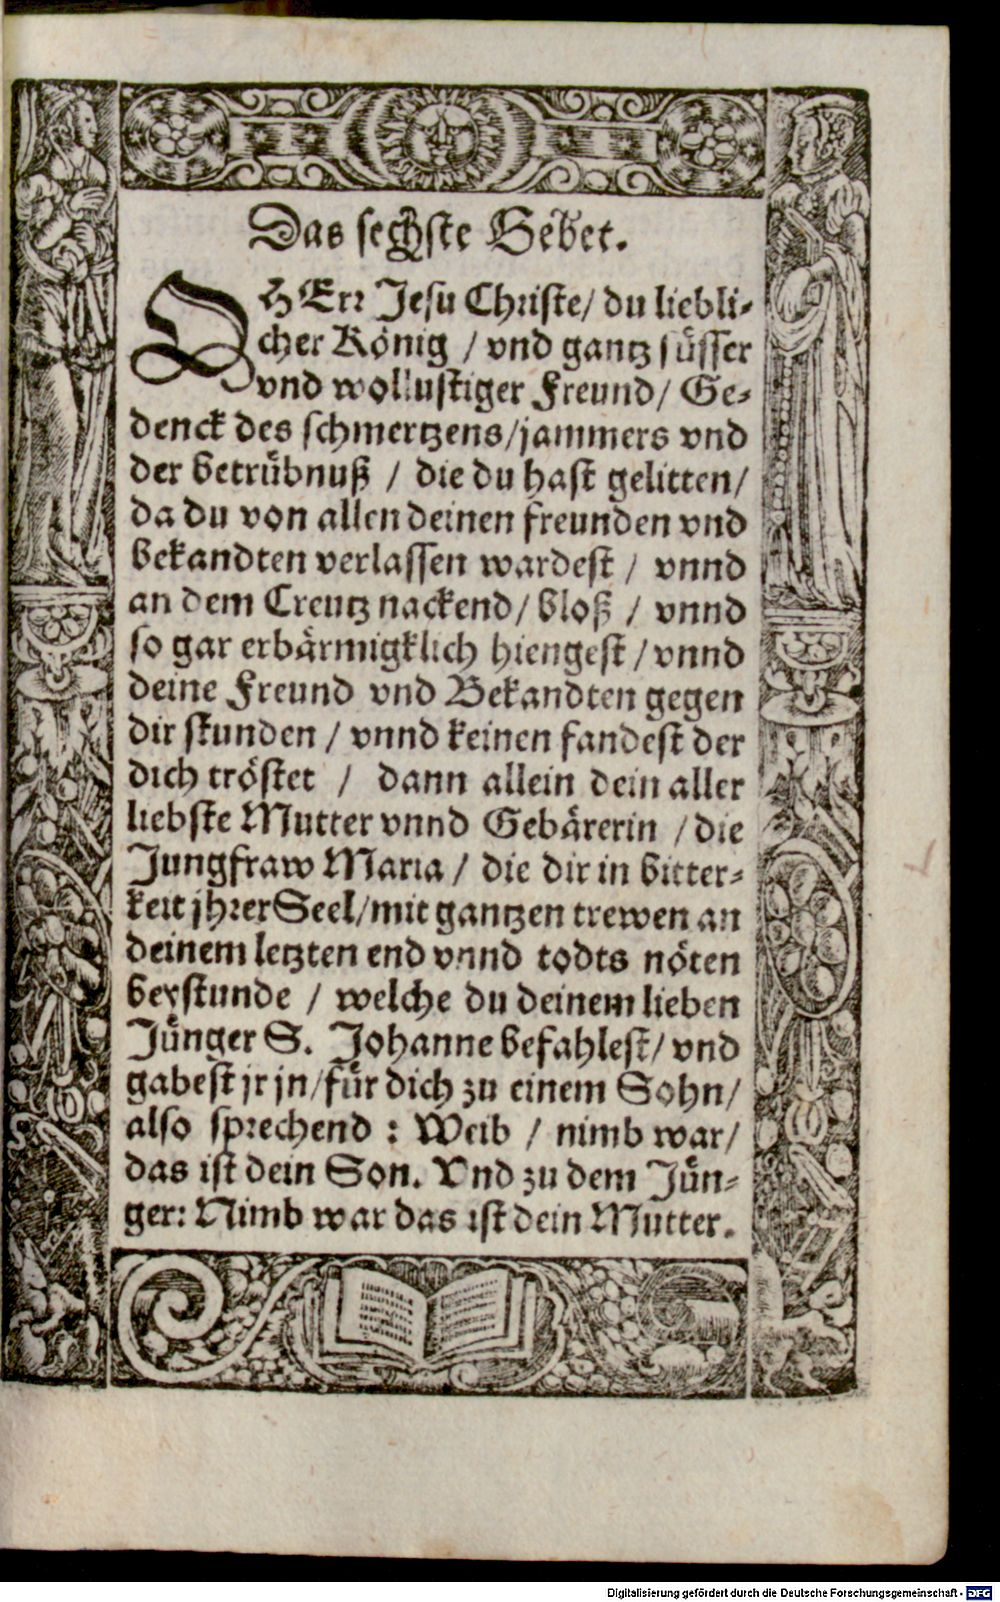 Das sechste Gebet.
O HErr Jesu Christe/ du liebli-
cher König / vnd gantz süsser
vnd wollustiger Freund/ Ge-
denck des schmertzens/jammers vnd
der betrübnuß / die du hast gelitten/
da du von allen deinen freunden vnd
bekandten verlassen wardest / vnnd
an dem Creutz nackend/ bloß / vnnd
so gar erbärmigklich hiengest / vnnd
deine Freund vnd Bekandten gegen
dir stunden / vnnd keinen fandest der
dich tröstet / dann allein dein aller
liebste Mutter vnnd Gebärerin / die
Jungfraw Maria / die dir in bitter-
keit jhrer Seel/mit gantzen trewen an
deinem letzten end vnnd todts nöten
beystunde / welche du deinem lieben
Jünger S. Johanne befahlest/ vnd
gabest jr jn/für dich zu einem Sohn/
also sprechend : Weib / nimb war/
das ist dein Son. Vnd zu dem Jün-
ger: Nimb war das ist dein Mutter.
Digitalisierung gefördert durch die Deutsche Forschungsgemeinschaft - DFG